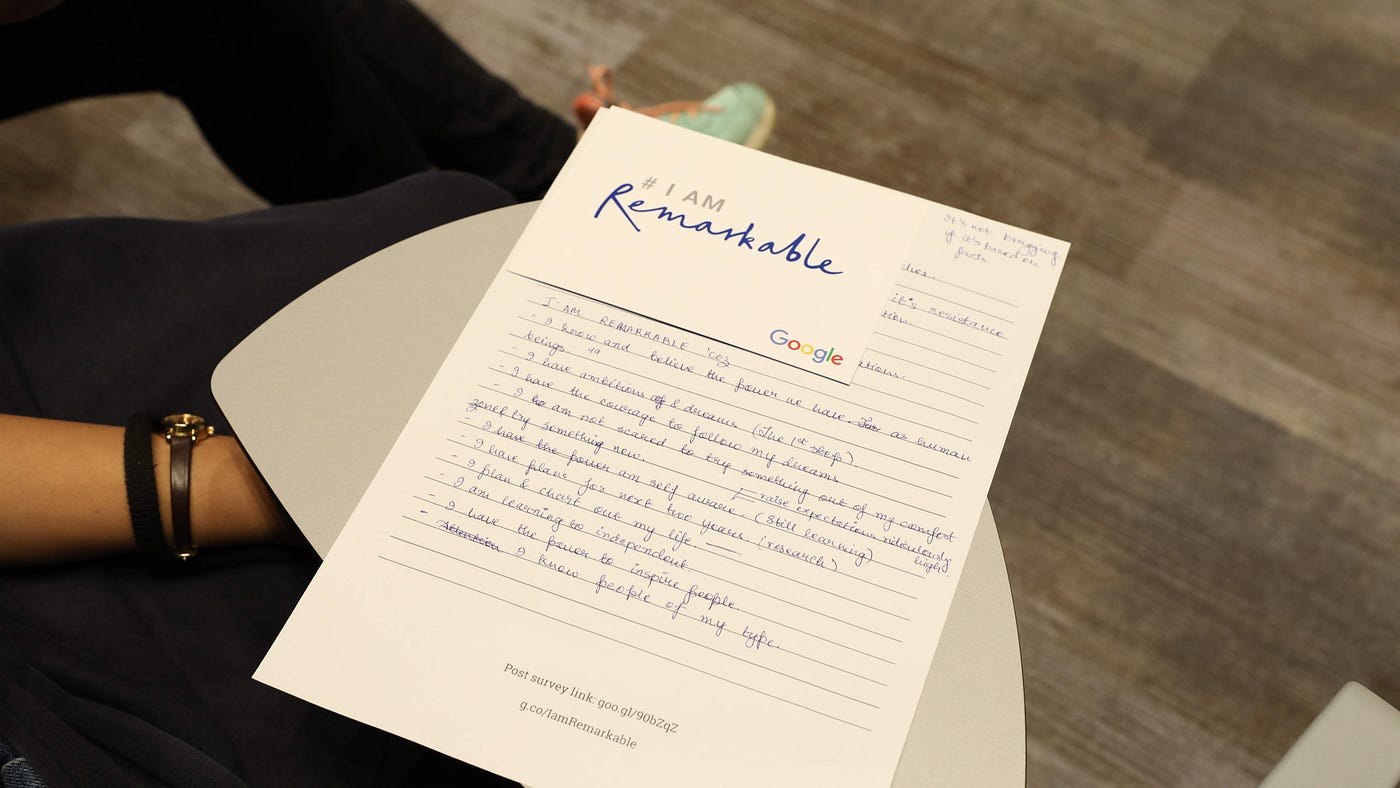 # I AM
Remarkable
Google
It's not bragging
if it's based on
facts
it's resistance
I AM REMARKABLE 'coz
- I know and believe the power we have as human
beings.
- I have ambitions & dreams (The 1st step).
- I have the courage to follow my dreams
- I am not scared to try something out of my comfort
zone/ try something new.
I raise expectations ridiculously
high.
- I have the power am self aware. (Still learning)
- I have plans for next two years. (research)
- I plan & chart out my life
- I am learning to independent.
- I have the power to inspire people.
- Attention I know people of my type.
Post survey link: goo.gl/90bZqZ
g.co/IamRemarkable